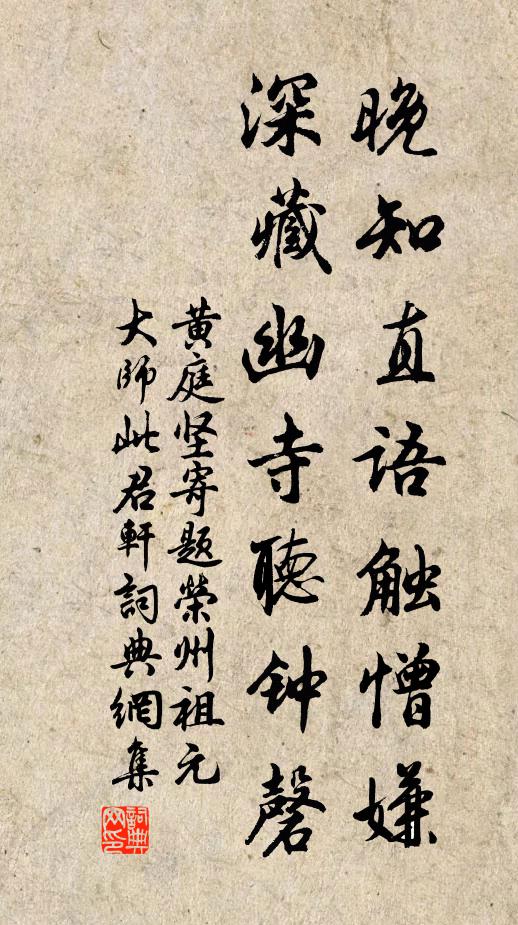 晚知直语触憎嫌
深藏幽寺聴钟磬
黄庭坚寄题荣州祖元
大师此君軒詞典網集
詞典网印